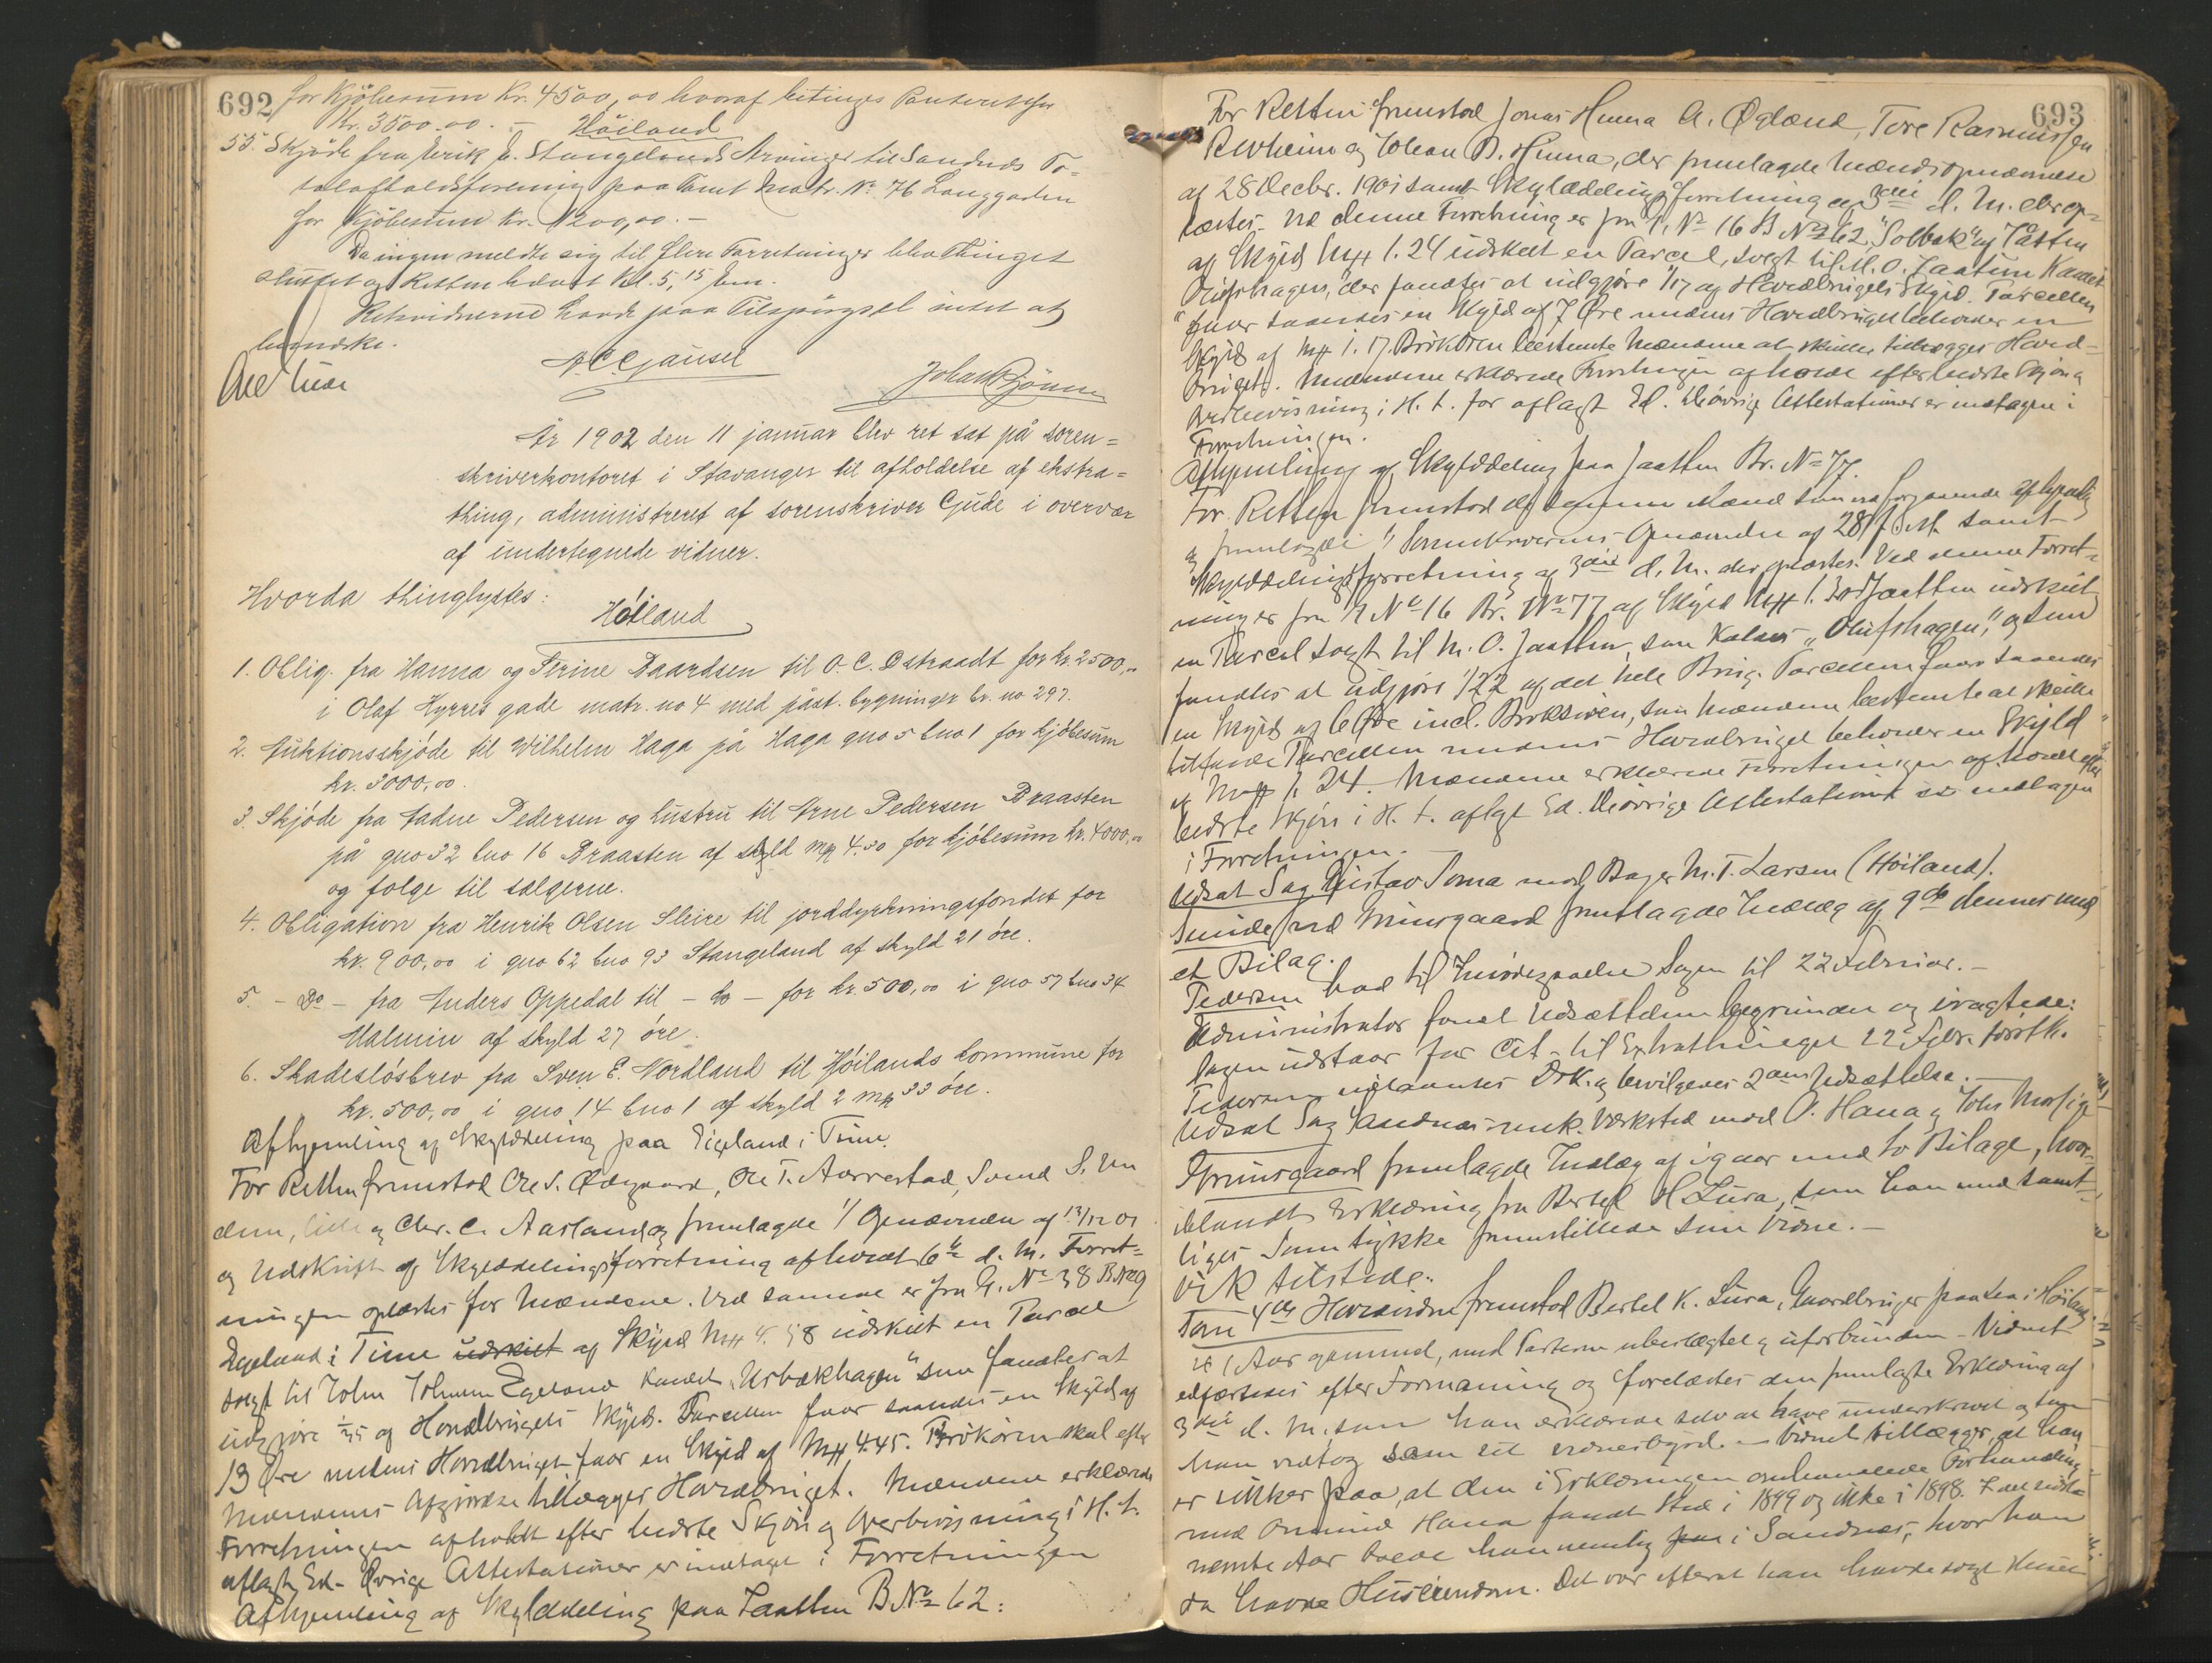 692
for Kjöbesum Kr. 4500,00 hvoraf betinges Panteret for
Kr. 3500.00. —
Höiland
55. Skjöde fra Eirik E. Stangelands Arvinger til Sandnes To-
talafholdsforening paa Tomt Matr. No 76 Langgaden
for Kjöbesum Kr. 1200,00. —
Da ingen meldte sig til flere Forretninger blev Thinget
sluttet og Retten hævet Kl. 5,15 Em.
Retsvidnerne havde paa Tilspörgsel intet at
bemærke.
A C Gausel
År 1902 den 11 januar blev ret sat på soren=
skriverkontoret i Stavanger til afholdelse af ekstra=
thing, administreret af sorenskriver Gjude i overvær
af undertegnede vidner.
Hvorda thinglystes:
Höiland
1. Oblig. fra Hanna og Serine Baardsen til O. C. Østraadt for kr. 2500,00
i Olaf Kyrres gade matr. no 4 med påst. bygninger br. no 297.
2. Auktionsskjöde til Wilhelm Haga på Haga gno 5 bno 1 for kjöbesum
kr. 3000,00.
3. Skjöde fra Aadne Pedersen og hustru til Arne Pedersen Braasten
på gno 32 bno 16 Braasten af skyld mk 4.30 for kjöbesum kr. 4000,00
og folge til sælgerne.
4. Obligation fra Henrik Olsen Sleire til jorddyrkningsfondet for
kr. 900,00 i gno 62 bno 93 Stangeland af skyld 21 öre.
5. - Do - fra Anders Oppedal til - do - for kr. 500,00 i gno 57 bno 34
Malmin af skyld 27 öre.
6. Skadeslösbrev fra Sven E. Nordland til Höilands kommune for
kr. 500,00 i gno 14 bno 1 af skyld 2 mk 33 öre.
Afhjemling af Skylddeling paa Eigeland i Time.
For Retten fremstod Ole S. Ødegaard, Ole T. Aarrestad, Svend S. Un
dem, lille og Chr. C. Aarland og fremlagde 1/ Opnævnelse af 13/12 01
og Udskrift af Skylddelingsforretning afholdt 6te d. M. Forret-
ningen oplæstes for Mændene. Ved samme er fra G. No 38 B No 9
Egeland i Time udskilt af Skyld Mk 4.58 udskilt en Parcel
solgt til John Johnsen Egeland kaldet "Urbækhagen" som fandtes at
udgjøre 1/35 af Hovedbrugets Skyld. Parcellen faar saaledes en Skyld af
13 Øre medens Hovedbruget faar en Skyld af Mk 4.45. Brökören skal efter
Mændenes Afgjörelse tillægges Hovedbruget. Mændene erklærede
Forretningen afholdt efter bedste Skjön og Overbevisning i H. t.
aflagt Ed - Øvrige Attestationer er indtaget i Forretningen
Afhjemling af Skylddeling paa Jaatten B. No 62:
693
For Retten fremstod Jonas Hinna A. Øglænd, Tore Rasmussen
Revheim og Johan B. Hinna, der fremlagde Mændsopnævnelse
af 28 Decbr. 1901 samt Skylddelingsforretning af 3die d. M. der op-
læstes. Ved denne Forretning er fra G. No 16 B No 62 "Solbak" af Jåtten
af Skyld Mk 1.24 udskilt en Parcel, solgt til M. O. Jaatten kaldet
"Olufshagen", der fandtes at udgjøre 1/17 af Hovedbrugets Skyld. Parcellen
faar saaledes en Skyld af 7 Øre medens Hovedbruget beholder en
Skyld af Mk 1.17. Brökören bestemte Mændene at skulle tillægges Hoved-
bruget. Mændene erklærede Forretningen afholdt efter bedste Skjøn og
Overbevisning i H. t. før aflagt Ed. De øvrige Attestationer er indtagne i
Forretningen.
Afhjemling af Skylddeling paa Jaatten Br. No 77.
For Retten fremstod de samme Mænd som ved foregaaende Afhjemling
og fremlagde 1/ Sorenskriverens Opnævnelse af 28/ f. M. samt
Skylddelingsforretning af 3die d. M. der oplæstes. Ved denne Forret-
ning er fra G No 16 Br. No 77 af Skyld Mk 1.30 Jaatten udskilt
en Parcel solgt til M. O. Jaatten, som kaldes "Olufshagen", og som
fandtes at udgjøre 1/22 af det hele Brug. Parcellen faar saaledes
en Skyld af 6 Øre incl. Brøksören, som Mændene bestemte at skulle
tilfalde Parcellen medens Hovedbruget beholder en Skyld
af Mk 1.24. Mændene erklærede Forretningen afholdt efter
bedste Skjøn i H. t. aflagt Ed. De övrige Attestationer er indtagen
i Forretningen. —
Udsat Sag Gustav Soma mod Bager M. T. Larsen (Höiland).
Sunde ved Grimsgaard fremlagde Indlæg af 9de dennes med
et Bilag.
Pedersen bad til Imödegaaelse Sagen til 22 Februar. —
Administrator fandt Udsættelsen begrundet og eragtede:
Sagen udstaar for Cit. til Extrathinget 22de Febr. förstk.
Pedersen bevilgedes 2den Udsættelse. —
Udsat Sag Sandnes mek. Værksted mod O. Hana og Johs Morsige
Grimsgaard fremlagde Indlæg af igaar med to Bilage, hvor-
iblandt Erklæring fra Bertel K Lura, som han med samt-
liges Samtykke fremstillede som Vidne. —
V. K. tilstede.
Som 4de Hovedvidne fremstod Bertel K. Lura, Gaardbruger paa Lura i Höiland,
Aar gammel, med Parterne ubeslægtet og uforbunden - Vidnet
edfæstedes efter Formaning og forelæstes den fremlagte Erklæring af
3die d. M. som han erklærede selv at have underskrevet og som
han vedtog som sit Vidnesbyrd. — Vidnet tillægger, at han
er sikker paa, at den i Erklæringen omhandlede Forhandling
med Ommund Hana fandt Sted i 1899 og ikke i 1898. I det sidst-
nævnte Aar boede han nemlig paa i Sandnes, hvor han
da havde Huseiendom. Det var efterat han havde solgt Huset